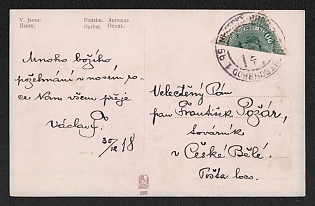 V. Jaroš
Podzim. Autumn.
Herbst.
Mnoho božího
požehnání v novém ro-
ce Vám všem přeje
Václav P.
30/12 18
Velectěný Pán
pan František Požár,
továrník
v České Bělé.
Pošta loco.